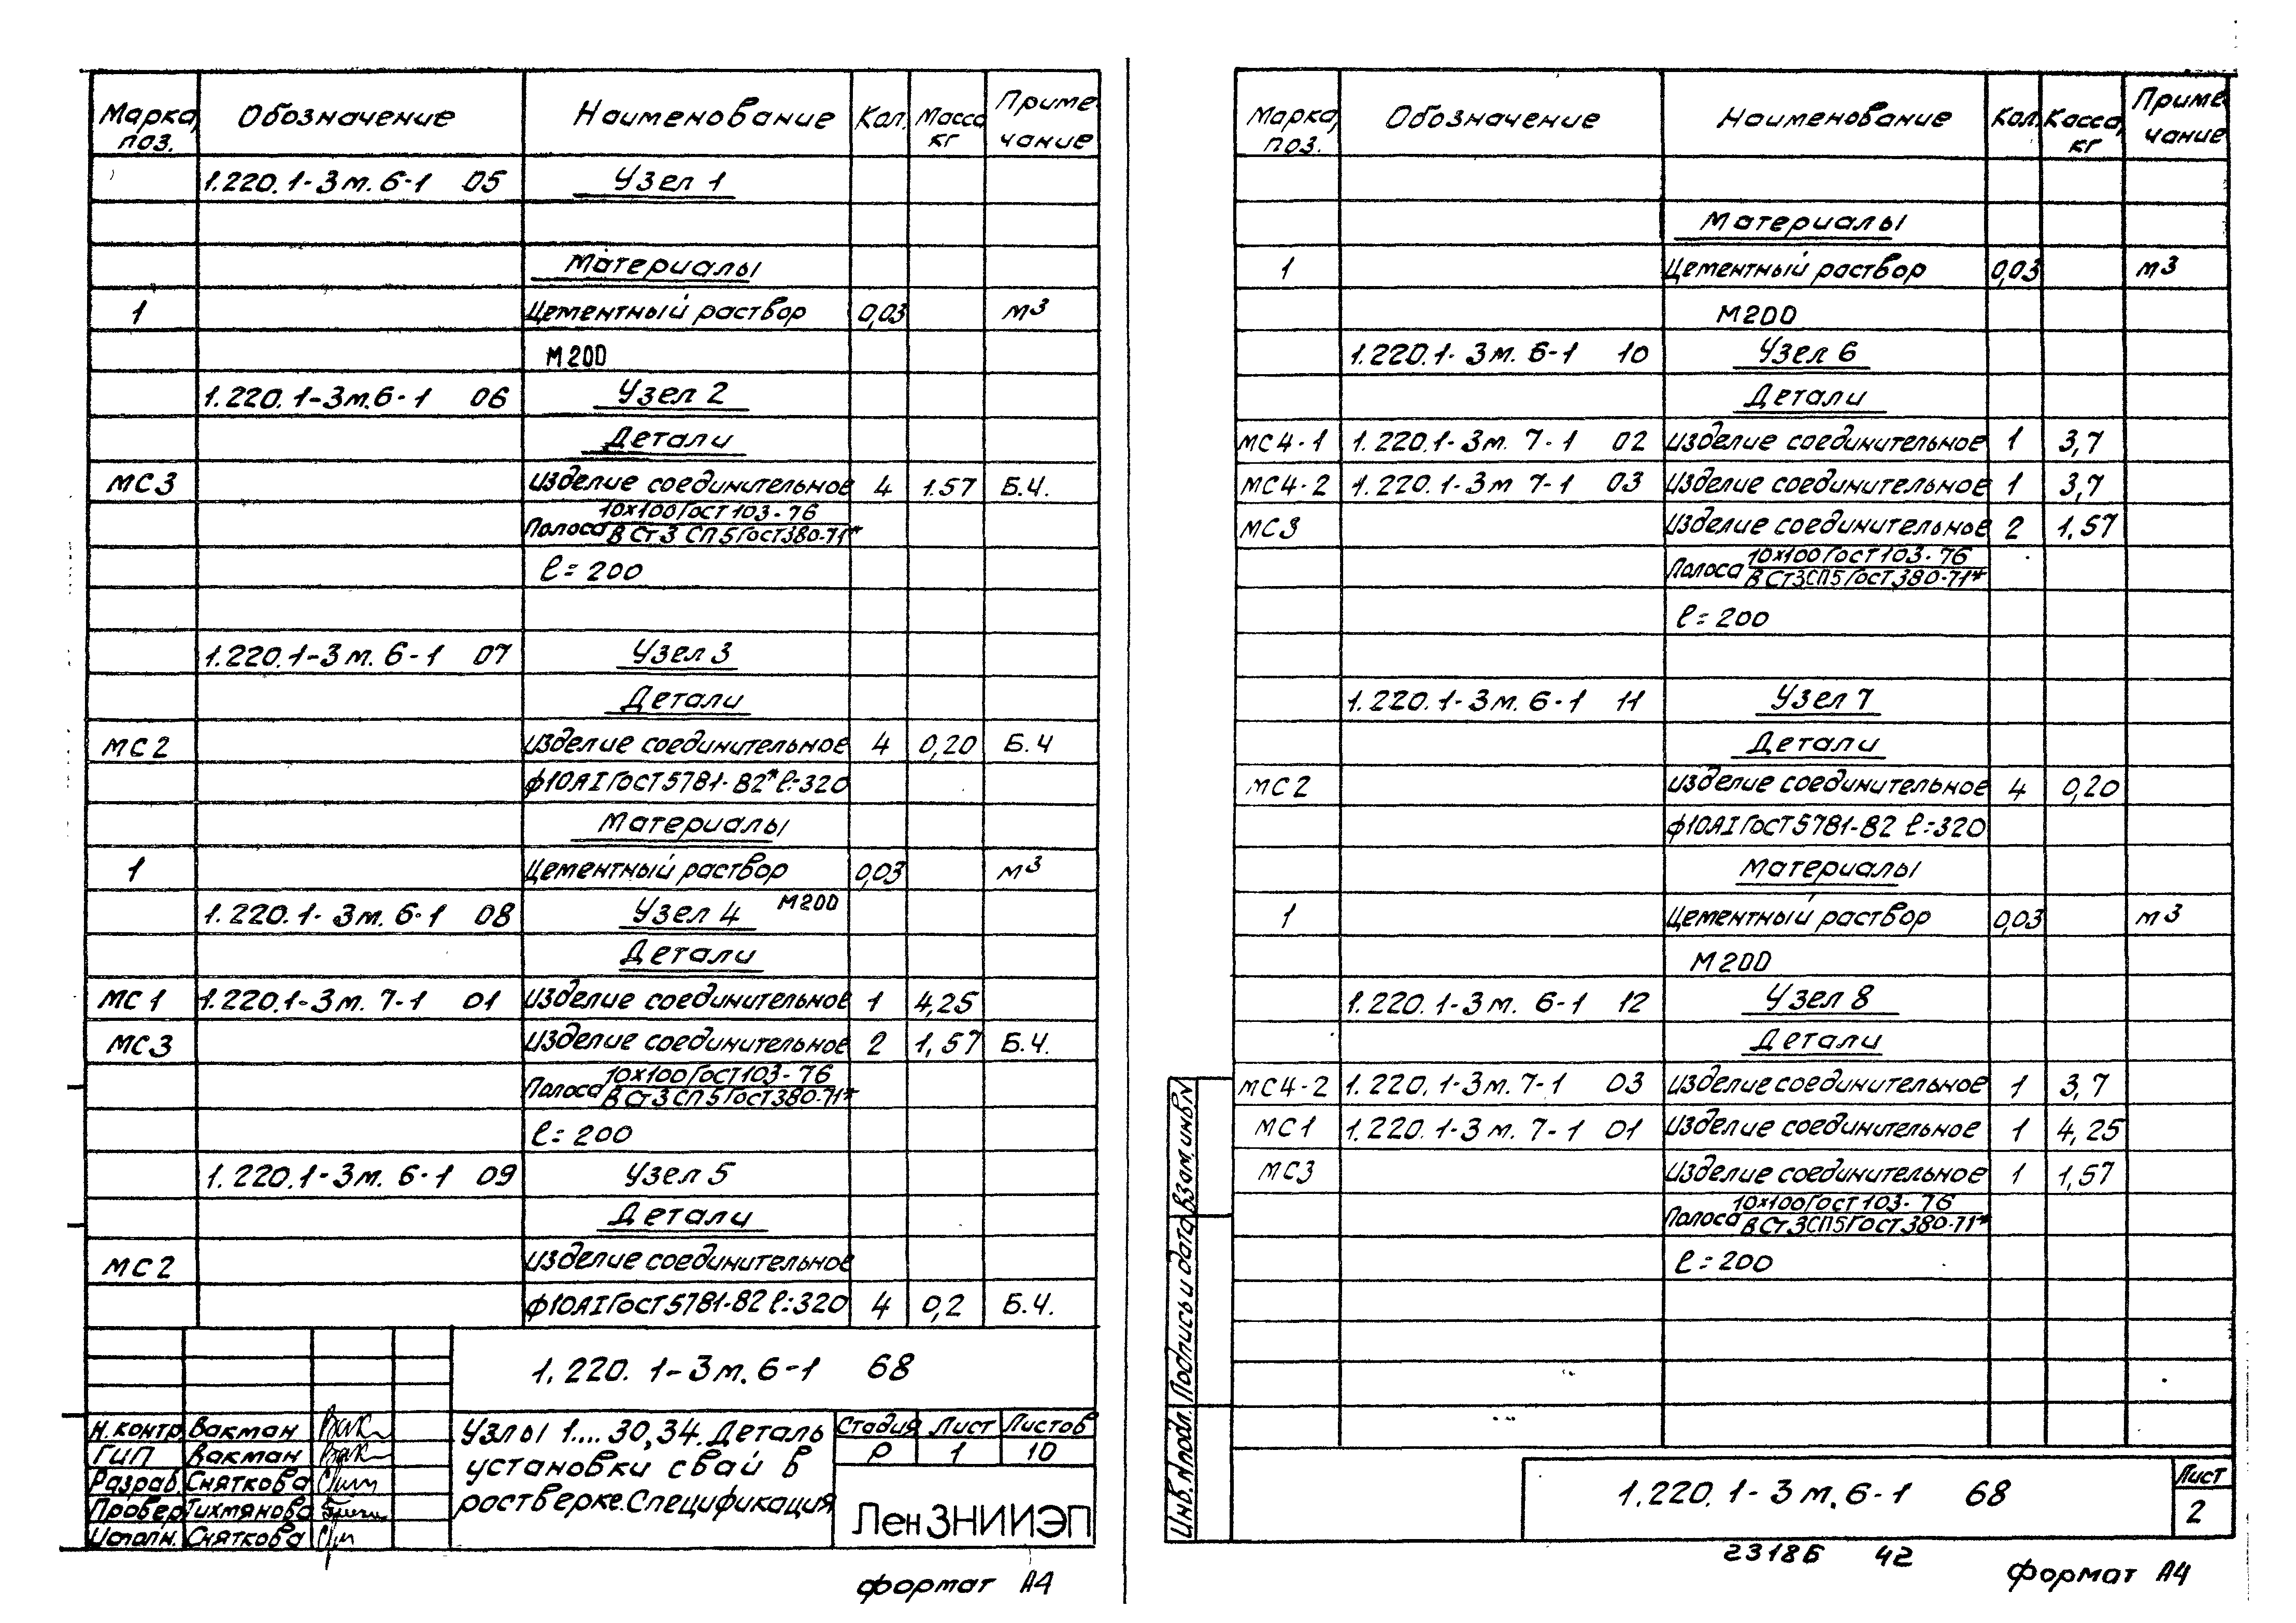 Марка, поз. Обозначение Наименование Кол. Масса кг Приме чание
1.220.1-3м.6-1 05 Узел 1
Материалы
1 Цементный раствор 0,03 м3
М200
1.220.1-3м.6-1 06 Узел 2
Детали
МС3 Изделие соединительное 4 1.57 Б.Ч.
Полоса 10х100 ГОСТ 103-76
В Ст.3 СП5 ГОСТ 380-71*
ℓ=200
1.220.1-3м.6-1 07 Узел 3
Детали
МС2 Изделие соединительное 4 0,20 Б.Ч
ф10АI ГОСТ 5781-82* ℓ=320
Материалы
1 Цементный раствор 0,03 м3
М200
1.220.1-3м.6-1 08 Узел 4
Детали
МС1 1.220.1-3м.7-1 01 Изделие соединительное 1 4,25
МС3 Изделие соединительное 2 1,57 Б.Ч.
Полоса 10х100 ГОСТ 103-76
В Ст3 СП5 ГОСТ 380-71*
ℓ=200
1.220.1-3м.6-1 09 Узел 5
Детали
МС2 Изделие соединительное
ф10АI ГОСТ 5781-82 ℓ=320 4 0,2 Б.Ч.
1.220.1-3м.6-1 68
Н.контр. Вакман
ГИП Вакман
Разраб. Сняткова
Провер. Тихмянова
Исполн. Сняткова
Узлы 1....30,34. Деталь
установки свай в
ростверке. Спецификация
Стадия Лист Листов
Р 1 10
ЛенЗНИИЭП
формат А4
Марка, поз. Обозначение Наименование Кол. Касса, кг Приме чание
Материалы
1 Цементный раствор 0,03 м3
М200
1.220.1-3м.6-1 10 Узел 6
Детали
МС4-1 1.220.1-3м.7-1 02 Изделие соединительное 1 3,7
МС4-2 1.220.1-3м 7-1 03 Изделие соединительное 1 3,7
МС3 Изделие соединительное 2 1,57
Полоса 10х100 ГОСТ 103-76
В Ст3СП5 ГОСТ 380-71*
ℓ=200
1.220.1-3м.6-1 11 Узел 7
Детали
МС2 Изделие соединительное 4 0,20
ф10АI ГОСТ 5781-82 ℓ=320
Материалы
1 Цементный раствор 0,03 м3
М200
1.220.1-3м.6-1 12 Узел 8
Детали
МС4-2 1.220.1-3м.7-1 03 Изделие соединительное 1 3,7
МС1 1.220.1-3м.7-1 01 Изделие соединительное 1 4,25
МС3 Изделие соединительное 1 1,57
Полоса 10х100 ГОСТ 103-76
В Ст.3СП5 ГОСТ 380-71*
ℓ=200
Инв.№подл. Подпись и дата Взам.инв№
1.220.1-3м.6-1 68
Лист
2
2318Б 42
формат А4